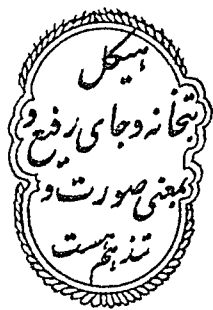 هیکل
بتخانه و جای رفیع و
بمعنی صورت و
هم هست